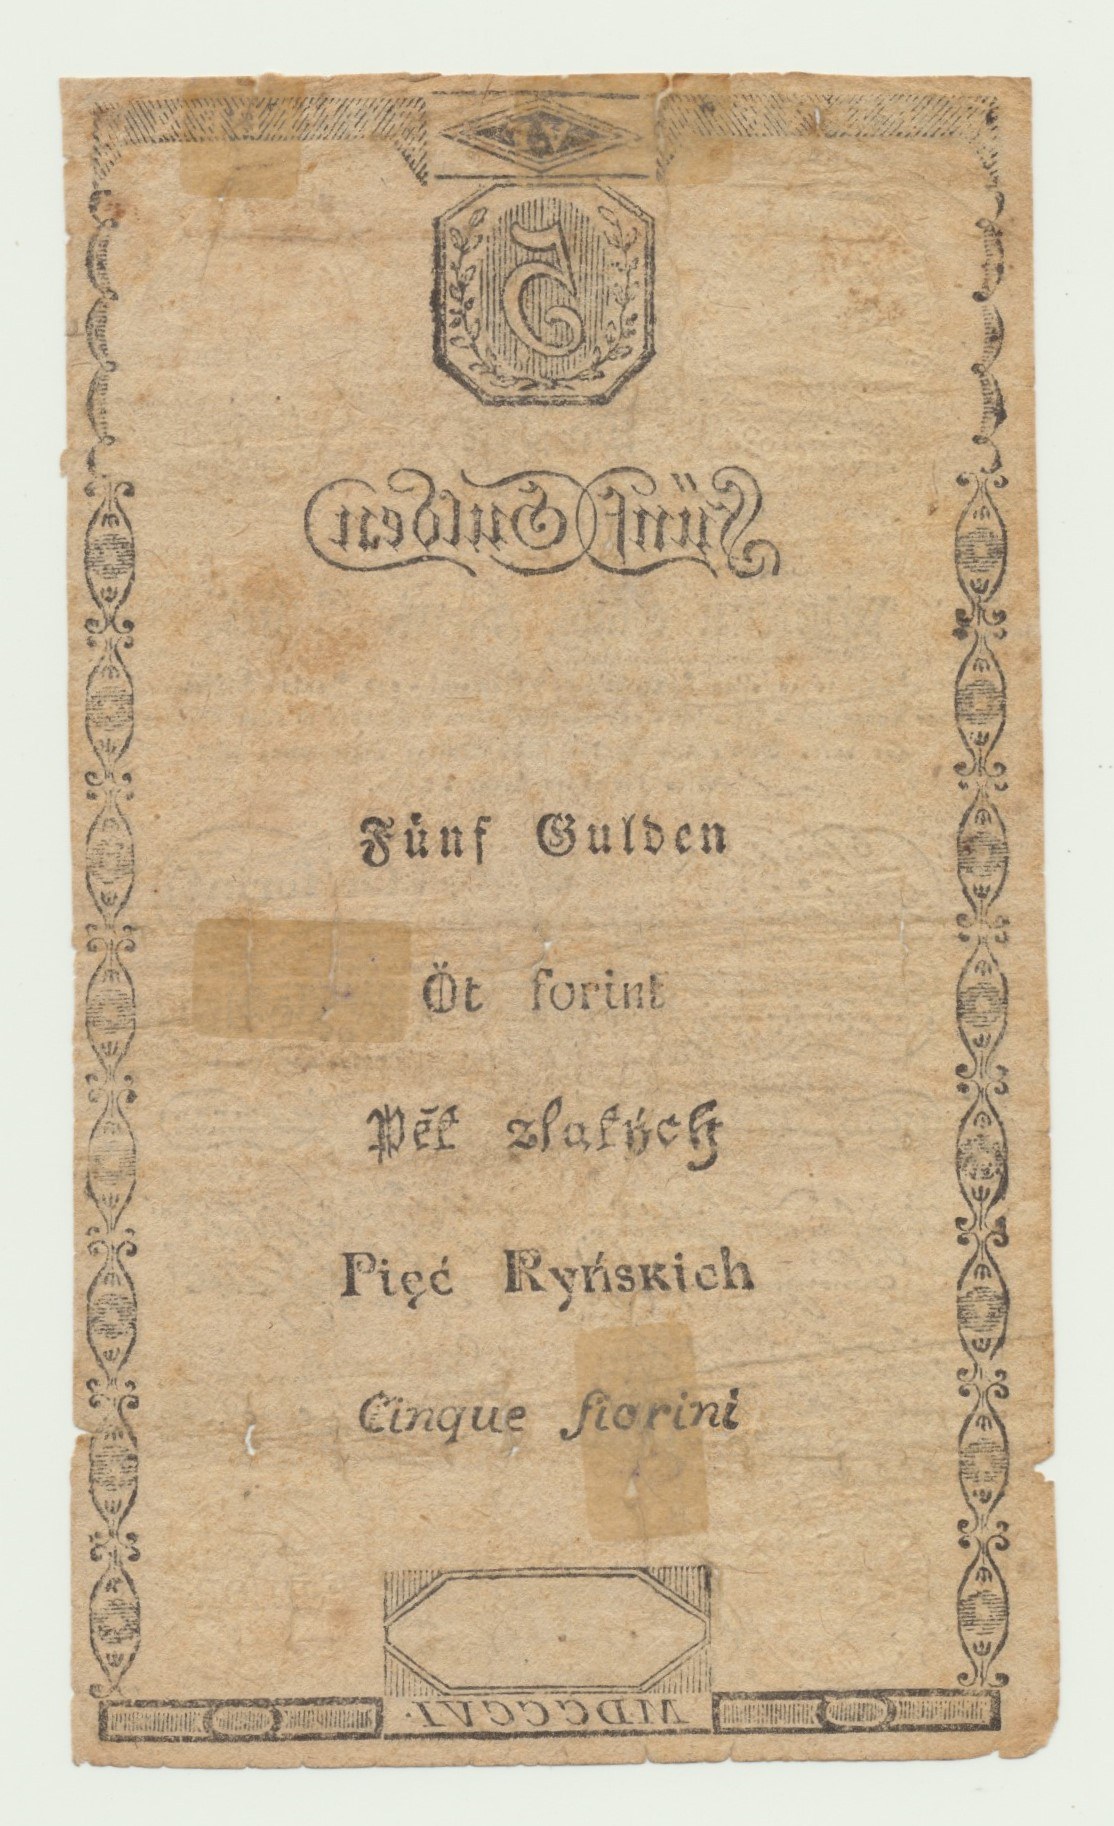 5
Fünf Gulden
Fünf Gulden
Öt forint
Pět zlatých
Pięć Ryńskich
Cinque fiorini
MDCCCVI.